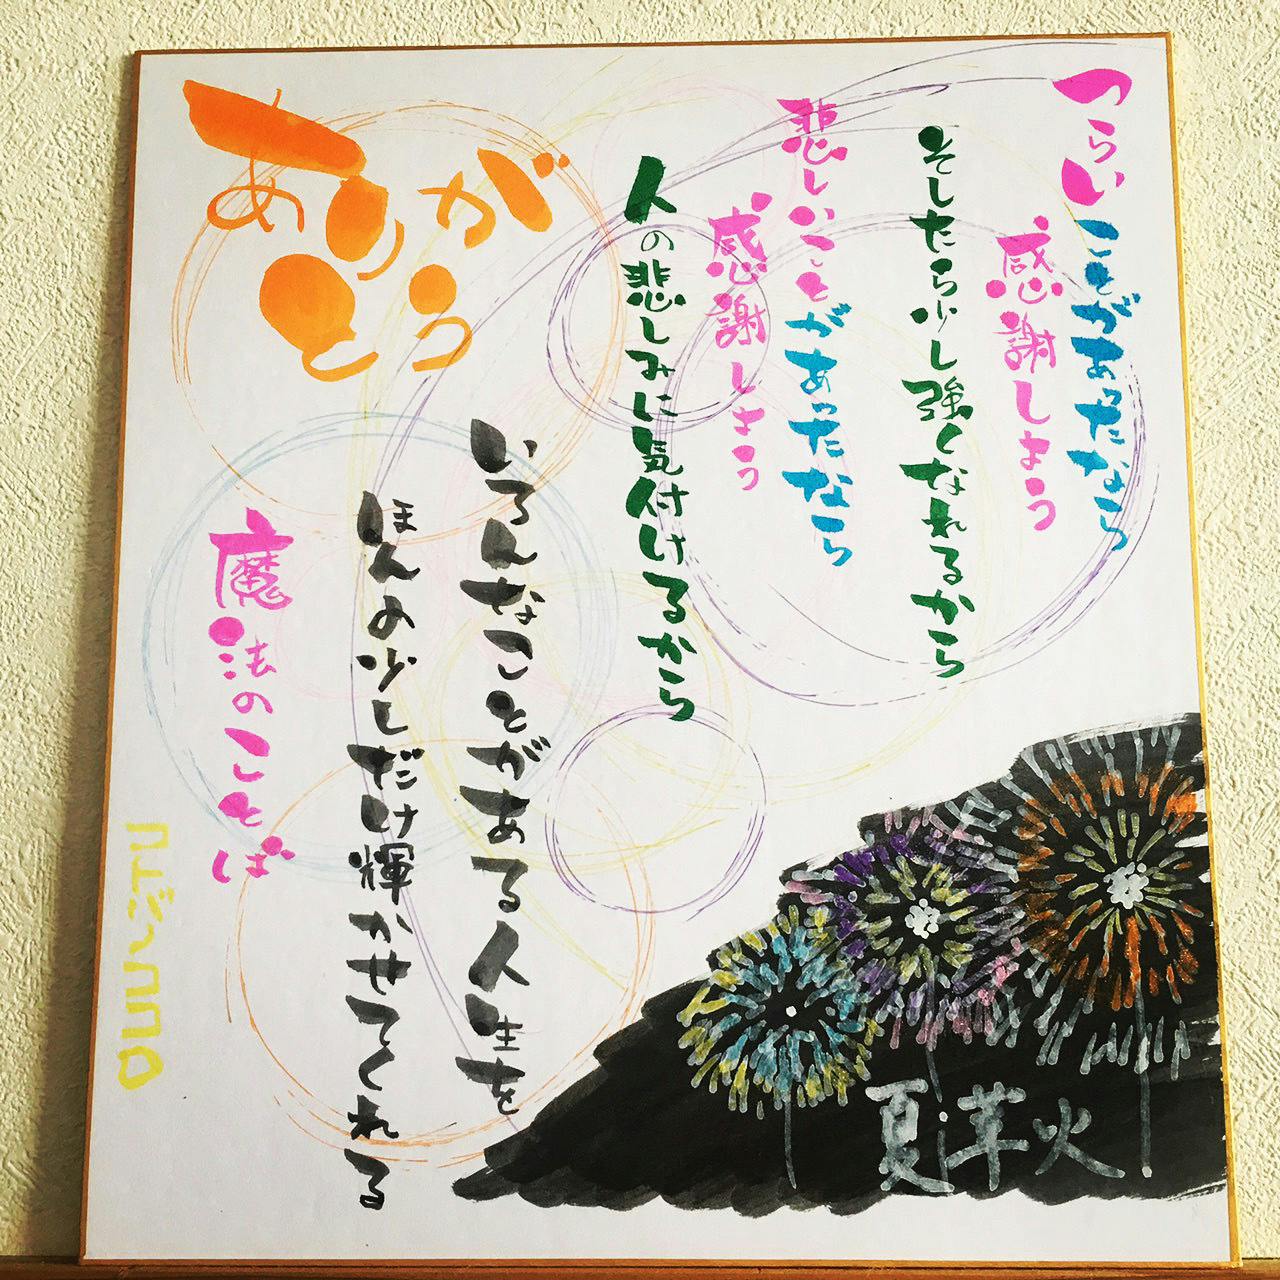 つらいことがあったなら
感謝しよう
そしたら少し強くなれるから
悲しいことがあったなら
感謝しよう
人の悲しみに気付けるから
いろんなことがある人生を
ほんの少しだけ輝かせてくれる
魔法のことば
ありがとう